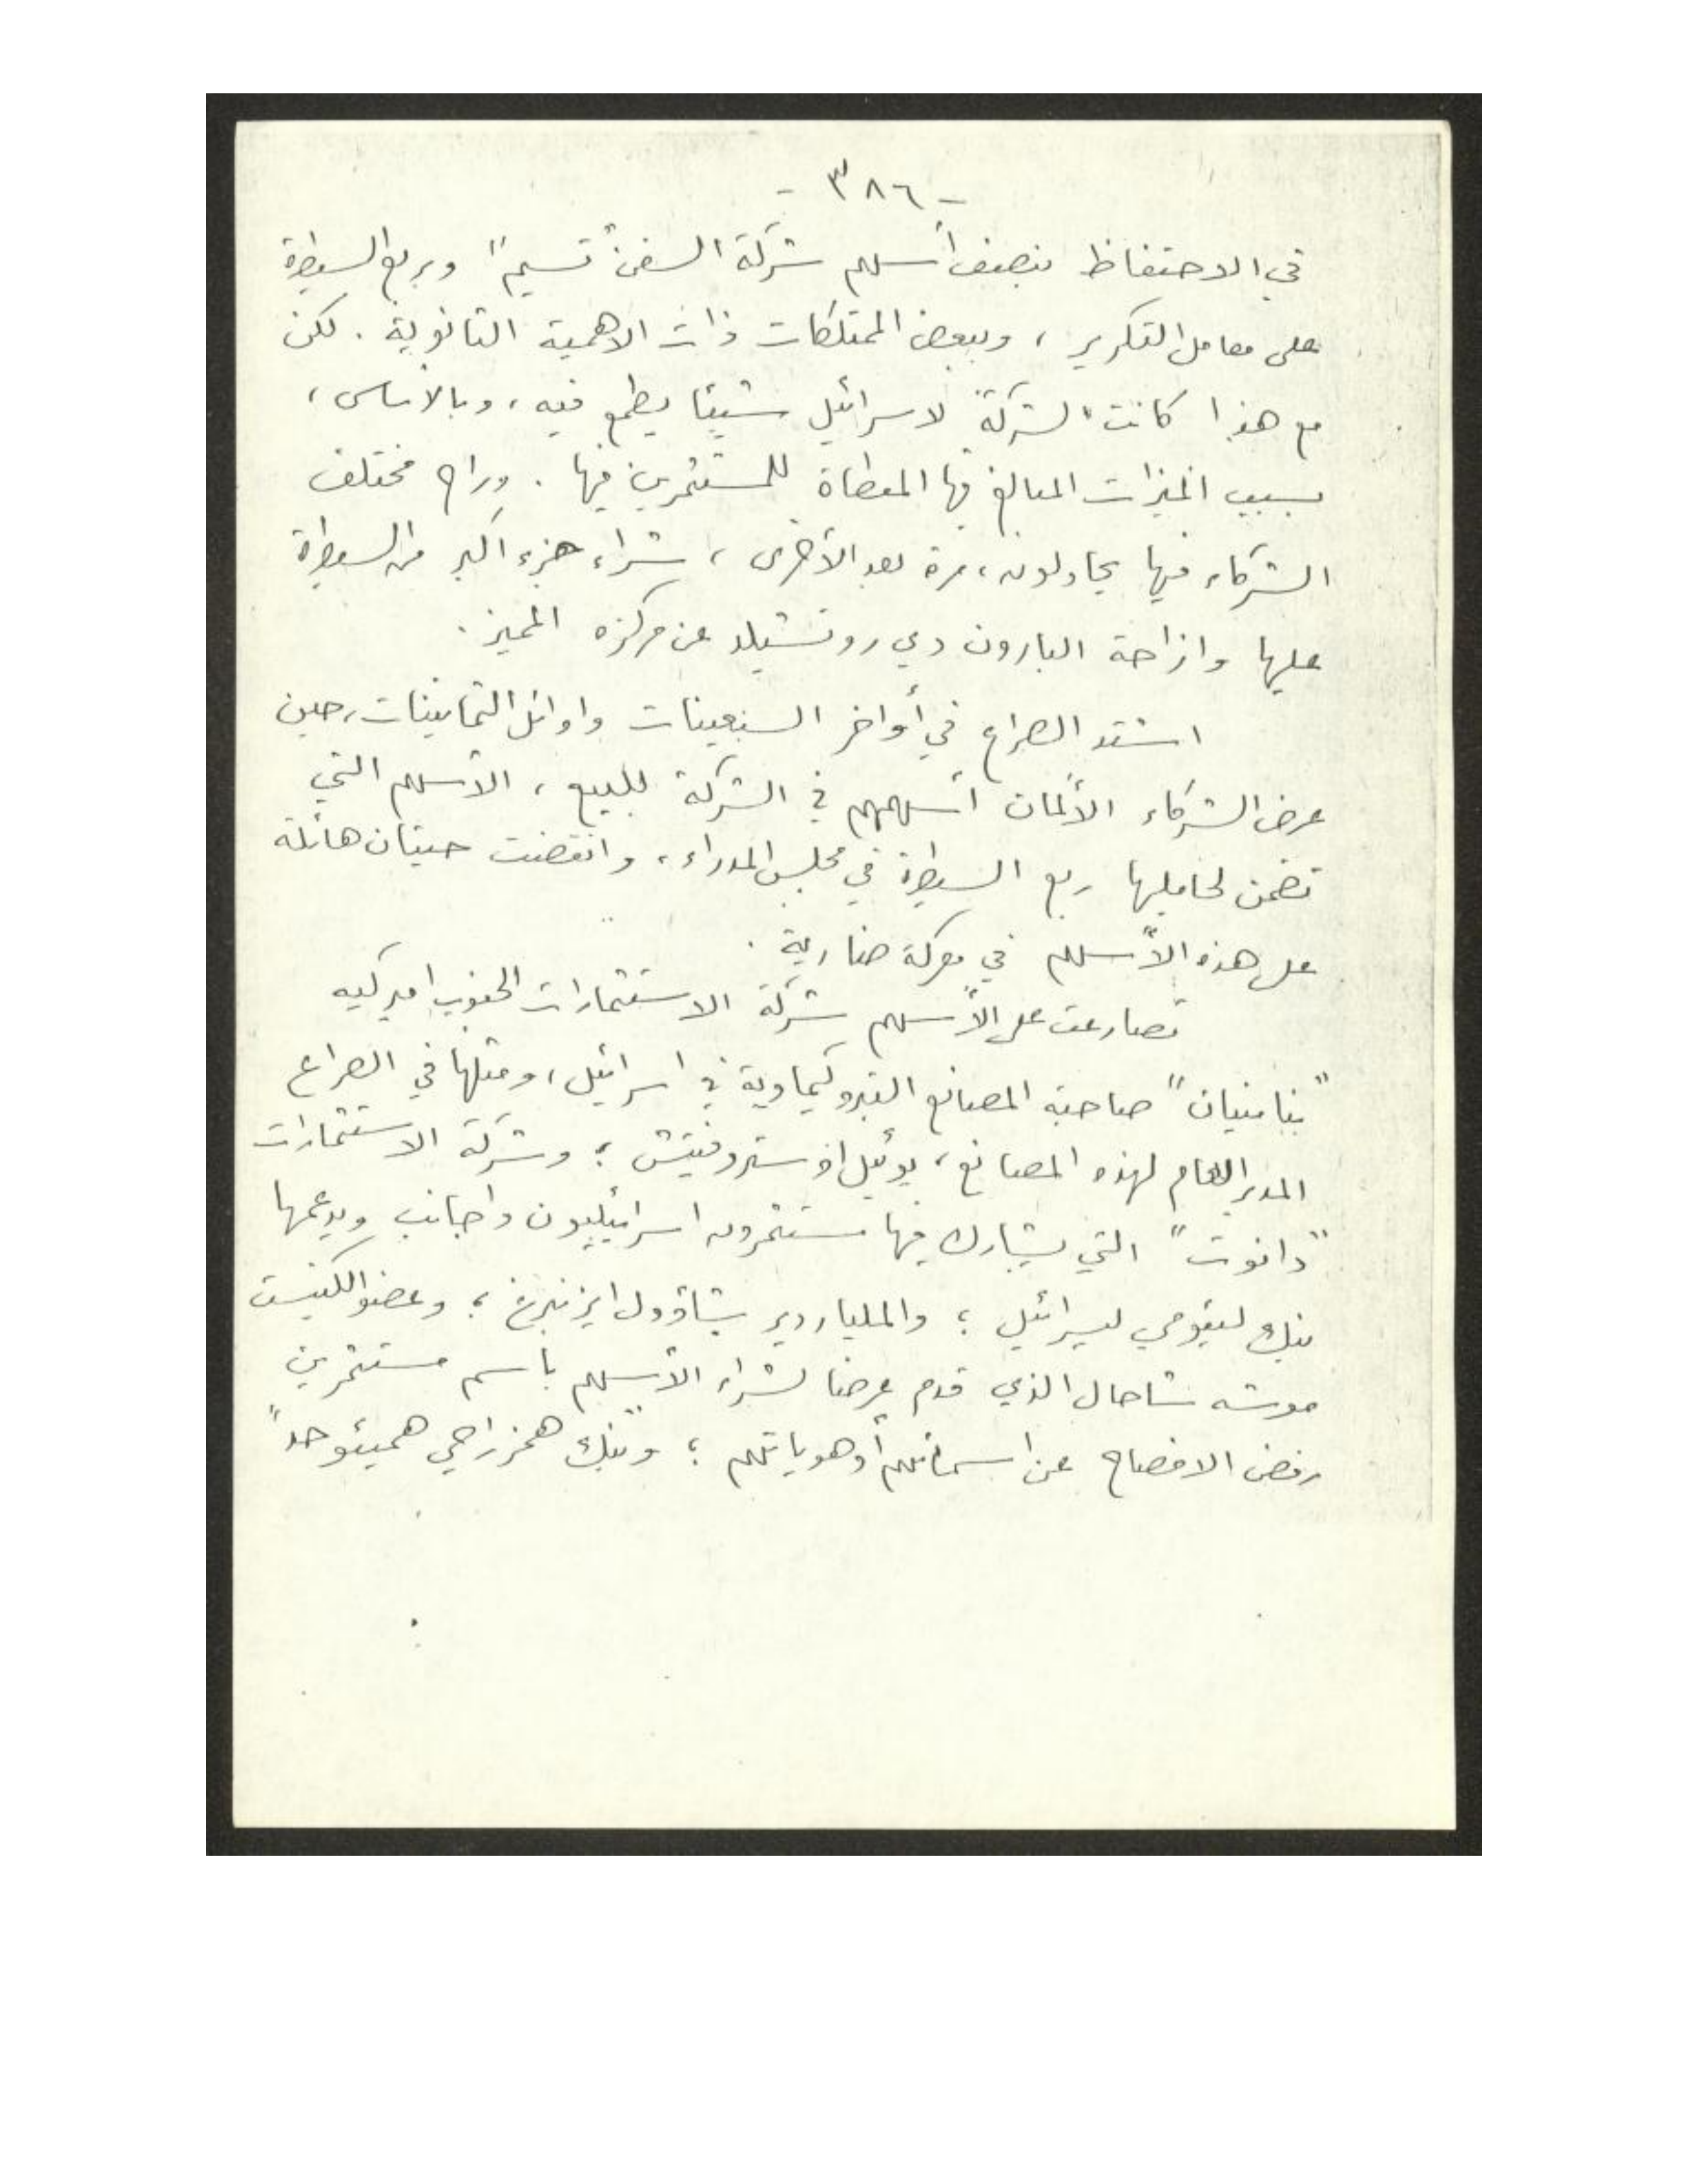 - ٣٨٦ -
في الاحتفاظ بنصف أسهم شركة السفن "تسيم" وبربع السيطرة
على معامل التكرير ، وببعض الممتلكات ذات الاهمية الثانوية . لكن
مع هذا كانت "شركة لاسرائيل" شيئا يطمع فيه ، وبالأساس ،
بسبب الميزات المبالغ فيها المعطاة للمستثمرين فيها . وراح مختلف
الشركاء فيها يحاولون ، مرة بعد الأخرى ، شراء جزء اكبر من السيطرة
عليها وازاحة البارون دي روتشيلد عن مركزه المميز .
اشتد الصراع في أواخر السبعينات واوائل الثمانينات ، حين
عرض الشركاء الألمان أسهمهم في الشركة للبيع ، الأسهم التي
تضمن لحامليها ربع السيطرة في مجلس المدراء ، وانقضت حيتان هائلة
على هذه الأسهم في معركة ضارية .
تصارعت على الأسهم شركة الاستثمارات الجنوب اميركيه
"بنامنيان" صاحبة المصانع البتروكيماوية في اسرائيل ، ومثلها في الصراع
المدير العام لهذه المصانع ، يوئيل اوستروفيتش ؛ وشركة الاستثمارات
"دانوت" التي يشارك فيها مستثمرون اسرائيليون واجانب ويدعمها
بنك لئومي ليسرائيل ؛ والملياردير شاؤول ايزنبرغ ؛ وعضو الكنيست
موشه شاحال الذي قدم عرضا لشراء الأسهم باسم مستثمرين
رفض الافصاح عن اسمائهم أو هوياتهم ؛ و"بنك همزراحي همیئوحد"